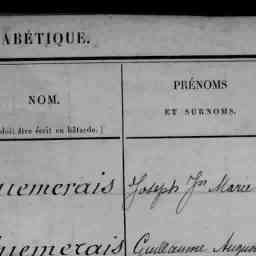 ABÉTIQUE.
NOM.
doit être écrit en bâtarde.)
PRÉNOMS
ET SURNOMS.
uemerais Joseph Jn Marie
uemerais Guillaume Augus